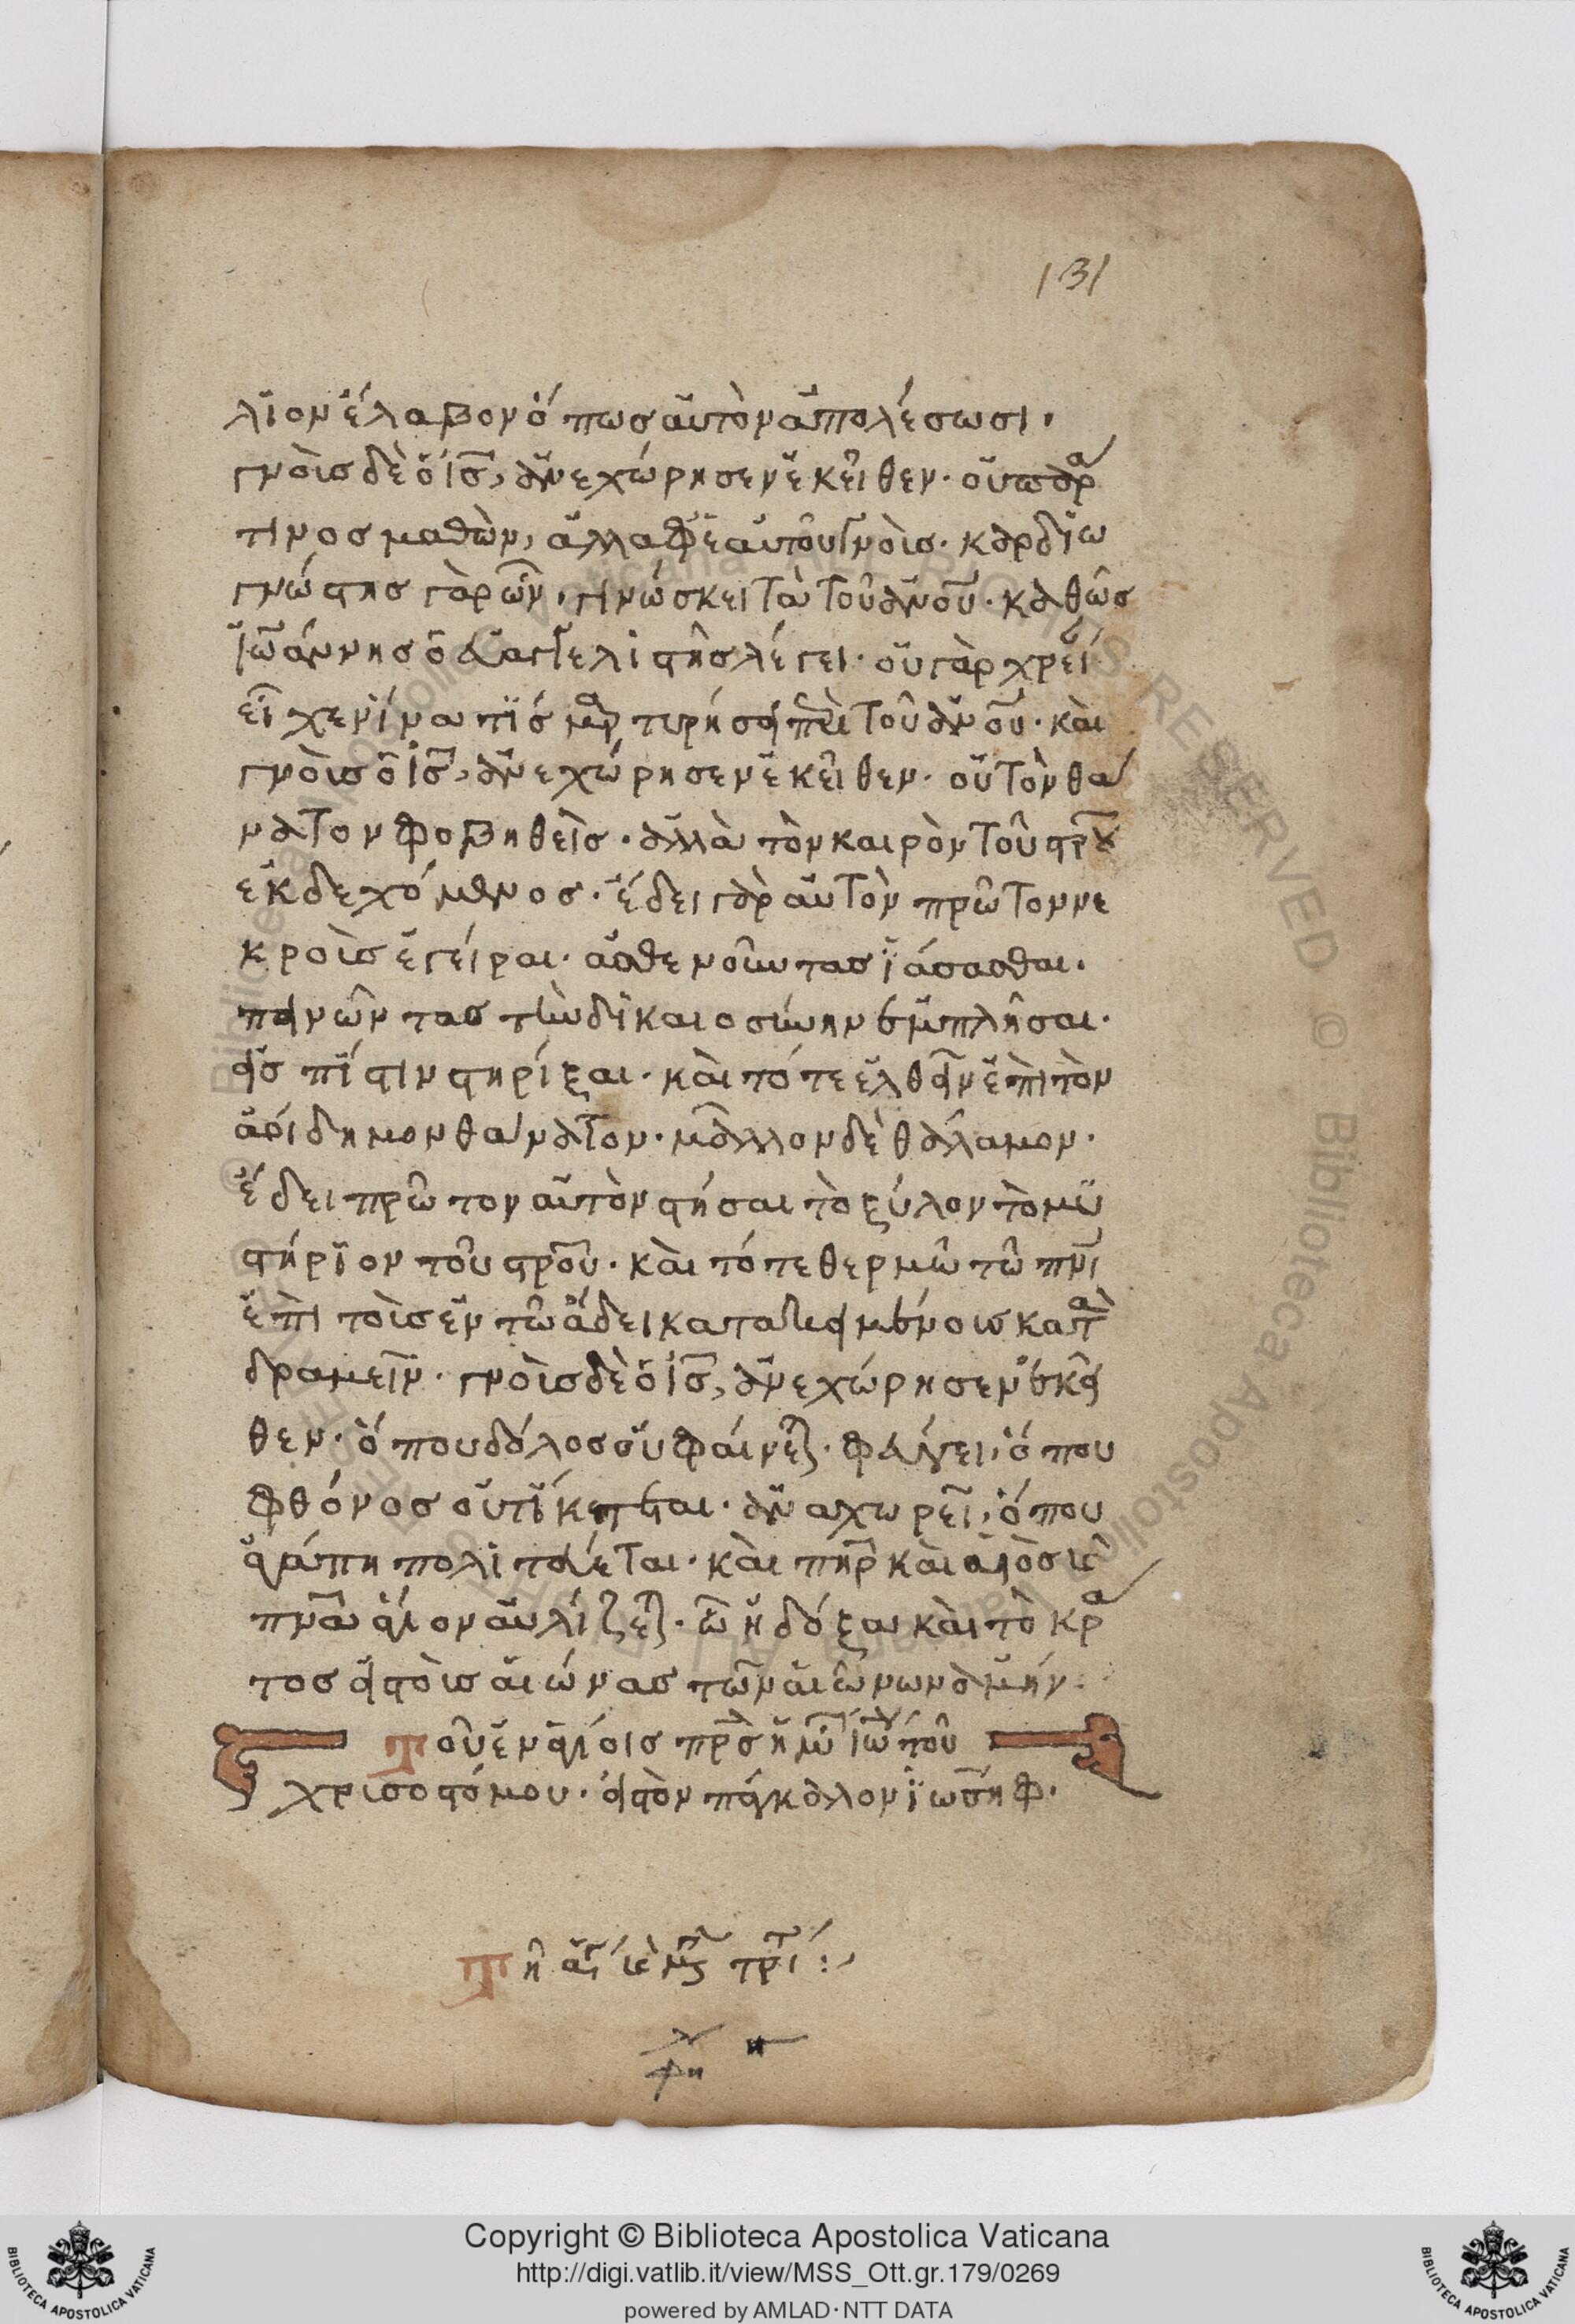 131
λϊον ἔλαβον ὅπως αὐτὸν ἀπολέσωσι.
γνοὺς δὲ ὁ ις, ἀνεχώρησεν ἐκεῖθεν. οὐ παρά
τινος μαθὼν, ἀλλ' ἀφ' ἑαυτοῦ γνοὺς. καρδϊω
γνώστης γὰρ ὢν, γινώσκει τὰ τοῦ ανου. καθὼς
Ϊωάννης ὁ εὐαγγελιστὴς λέγει. οὐ γὰρ χρεί
εἶχεν ἵνα τις μαρτυρήσει περὶ τοῦ ανου. καὶ
γνοὺς ὁ ις, ἀνεχώρησεν ἐκεῖθεν. οὐ τὸν θά
νατον φοβηθεὶς. ἀλλὰ τὸν καιρὸν τοῦ στρου
ἐκδεχόμενος. ἔδει γὰρ αὐτὸν πρῶτον νε
κροὺς ἐγείραι. ἀσθενοῦντας ϊάσασθαι.
πεινῶντας τὴν δικαιοσύνην ἐμπλῆσαι.
εἰς πίστιν στηρίξαι. καὶ τότε ἐλθεῖν ἐπὶ τὸν
ἀοίδημον θάνατον. μᾶλλον δὲ θάλαμον.
ἔδει πρῶτον αὐτὸν στήσαι τὸ ξύλον τὸ μυ
στήριον τοῦ στρου. καὶ τότε θερμῶ τῶ πνι
ἐπὶ τοῖς ἐν τῶ ἅδει κατακειμένοις κατα
δραμεῖν. γνοὺς δὲ ὁ ις, ἀνεχώρησεν ἐκεῖ
θεν. ὅπου δόλος οὐ φαίνεται. φεύγει, ὅπου
φθόνος οὐ τίκτεται. ἀναχωρεῖ, ὅπου
ἀγάπη πολιτεύεται. καὶ πηρ καὶ υἱὸς καὶ
πνα ἅγιον αὐλίζεται. ὧ ἡ δόξα καὶ τὸ κρά
τος εἰς τοὺς αἰώνας τῶν αἰώνων ἀμήν.
Τοῦ ἐν ἁγίοις πρς ἡμῶν Ϊω τοῦ
χρισοστόμου. εἰς τὸν πάγκαλον Ϊωσήφ.
Τῆ ἁγί